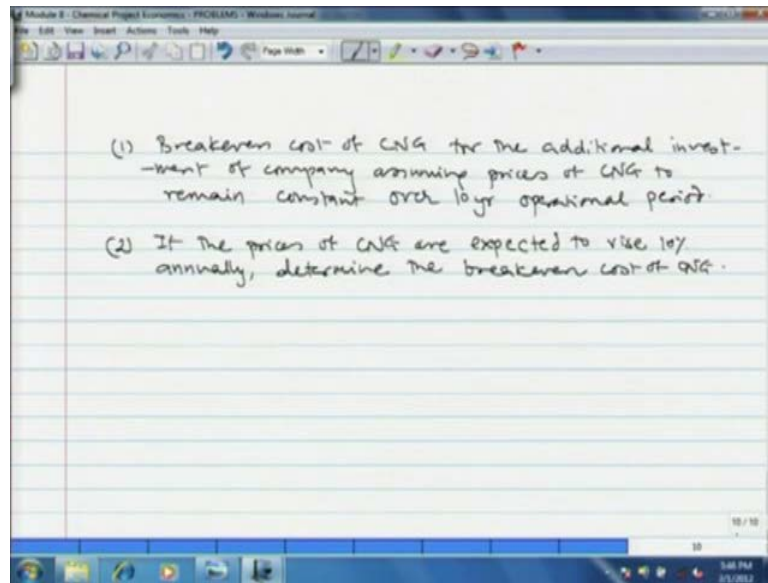 Module 8 - Chemical Project Economics - PROBLEMS - Windows Journal
File Edit View Insert Actions Tools Help
Page Width
(1) Breakeven cost of CNG for the additional invest-
-ment of company assuming prices of CNG to
remain constant over 10yr operational period.
(2) If the prices of CNG are expected to rise 10%
annually, determine the breakeven cost of CNG.
10 / 10
10
5:46 PM
2/1/2012